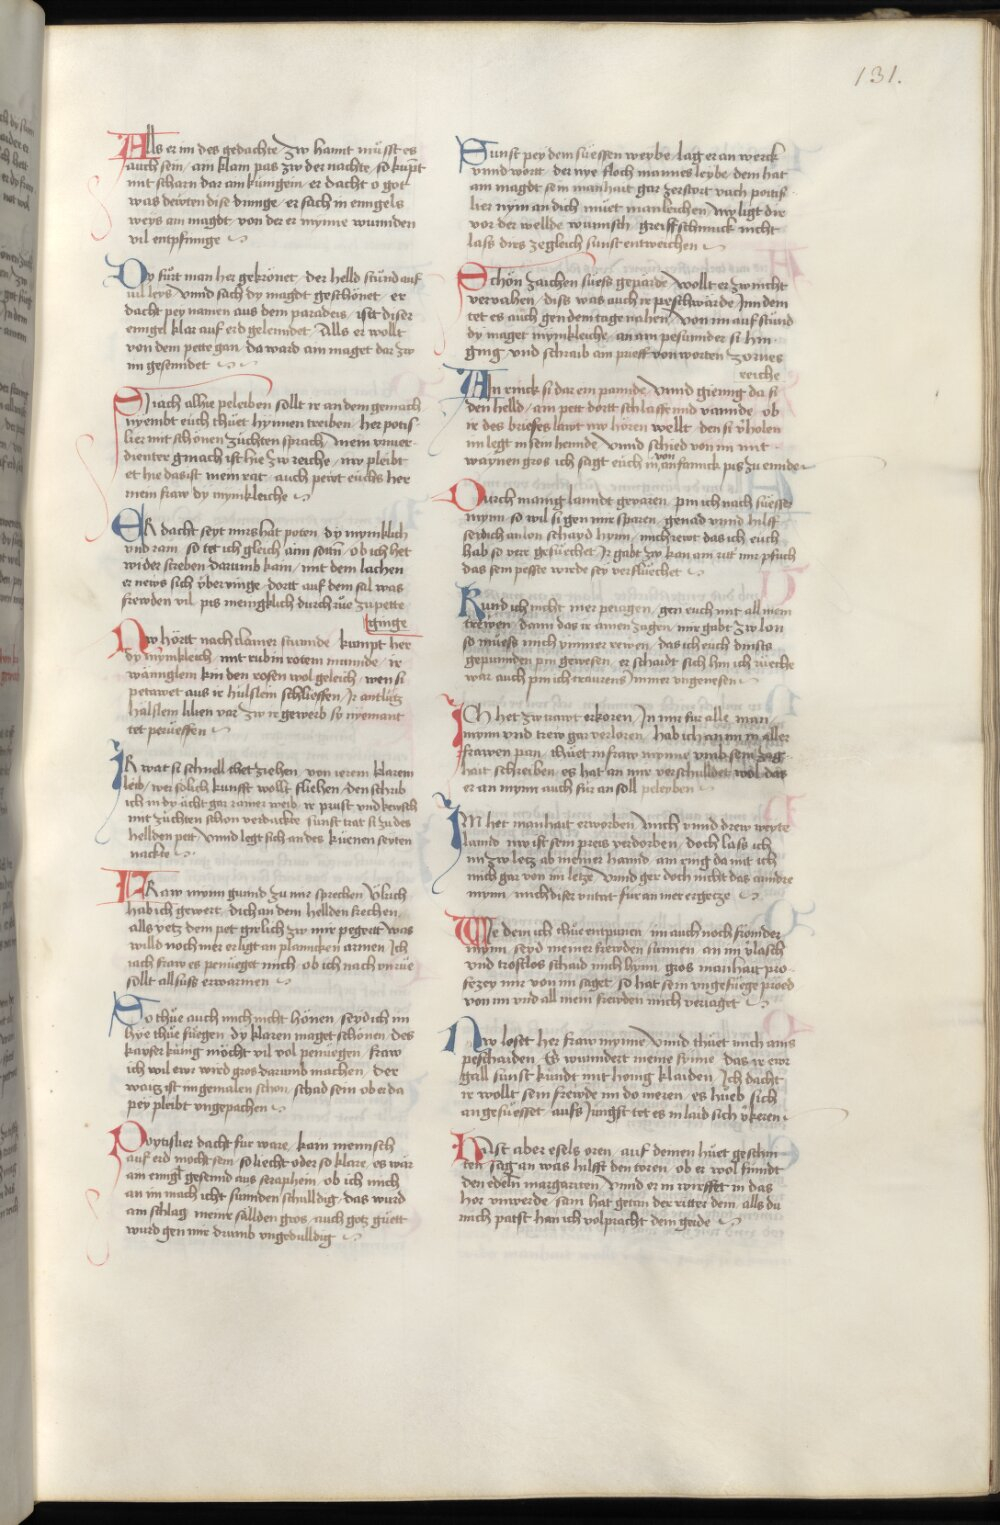 131.
Als er im des gedachte Zw hannt müsst es
auch sein / am klam pas zw der nachte / so kupt
mit scharn dar am kunigein / er dacht o got
was dewten dise dinnge / er sach in enngels
weys am magdt / von der er mynne wunnden
vil entpfinnge
Dy fürt man her gekrönet / der helld stund auf
vil leys / vnnd sach dy magdt geschönet / er
dacht pey namen aus dem paradeis / ist diser
enngel klar auf erd gelenndet / Alls er wollt
von dem pette gan / da ward am maget dar zw
im gesenndet
Si iach alhie peleiben sollt ir an dem gemach
nyembt euch thuet hynnen treiben / her poitis
lier mit schönen züchten sprach / mein vnuer
dienter gmach ist hie zw reiche / nw pleibt
et hie das ist mein rat / auch pewt euchs her
mein fraw dy mynkleiche
Er dacht seyt mirs hat poten / dy mynklich
vnd ram / so tet ich gleich ann sottn / ob ich het
wider streben darumb kain / mit dem lachen
er news sich vberwinge / dortt auf dem sal was
frewden vil / pis menigklich durch rüe zu pette
ginge
Nw hörtt nach klainer stunnde / kumpt her
dy mynkleich / mit rubin rotem munnde / ir
wänglein kin den rosen wol geleich / wen si
petawet aus ir hülslein schliessen / Ir antlütz
hälslein lilien var / zw ir gewerb sy nyemant
tet peruessen
Ir wat si schnell thet ziehen / von ierem klarem
leib / wer sölich kunfft wollt fliehen / den schrib
ich in dy ächt gar rainer weib / ir prust vnd kewsch
mit züchten schon verdackte / sunst trat si zu des
hellden pett / vnnd legt sich an des küenen seyten
nackte
Fraw mynn gunnd zu mir sprechen / Vlrich
hab ich gewert / dich an dem hellden frechen
alls yetz dem pet girlich zw mir pegertt was
willd noch mer er ligt an planncken armen / Ich
iach fraw es penueget mich / ob ich nach vnrüe
sollt allsuss erwarmen
So thüe auch mich nicht hönen / seyd ich im
hye thüe füegen / dy klaren maget schönen / des
kayser künig möcht vil vol penuegen / fraw
ich wil ewr wird gros darumb machen / der
waitz ist im gemalen schon / schad sein ob er da
pey pleibt vngepachen
Poytislier dacht für ware / kain mennsch
auf erd mocht sein / so liecht oder so klare / es wär
am enngl gesennd aus seraphein / ob ich mich
an im mach icht sünnden schulldig / das wurd
am schlag meiner sällden gros / auch gotz güett
wurd gen mir drumb vngedulldig
Sunst pey dem süessen weybe / lag er an werck
vnnd wortt / der nye floch mannes leybe / dem hat
am magdt sein manhait gar zerstört / vach poitis
lier nym an dich müet manleichen / nw ligt dir
vor der wellde wunnsch / greiff schmuck nicht
lass dirs ze gleich sunst entweichen
Schön zaichen süess geparde / wollt er zw nicht
vervahen / diss was auch ir peschwärde / Inndem
tet es auch gen dem tage nahen / Von im auf stuend
dy maget mynkleiche / an am pesunnder si hin
ging / vnd schraib am prieff von worten zornes
reiche
An rinck si dar em pannde / vnnd gienng da si
den helld / am pett dortt schlaffennd vannde / ob
ir des briefes lawt nw hören wellt / den si vholen
im legt in sein hemde / vnnd schied von im mit
waynen gros / ich sagt euch in von anfannck pis zu ennde
Durch manig lanndt gevaren / pin ich nach süesser
mynn / so wil si gen mir sparen / genad vnnd hilff
seyd ich an lon schayd hynn / mich rewt das ich euch
hab so verr gesuechet / Ir gabt zw kan am ritt mir pfuch
das sein peste wirde sey verfluechet
Kund ich nicht mer peiagen / gen euch mit all mein
trewen / dann das ir ainen zagen / mir gabt zw lon
so muess mich ymmer rewen / das ich euch dinsts
gepunnden pin gewesen / er schaidt sich hin ich wische
war auch pin ich traurens ymmer vngenesen
Ich het zw trawt erkoren / In mir für alle man
mynn vnd trew gar verloren / hab ich an im in aller
frawen pan / thuet in fraw mynne vmb sein zag
hait schreiben / es hat an mir verschulldet wol das
er an mynn auch für an soll peleyben
Im het manhait erworben / mich vnnd drew weyte
lannd / nw ist sein preis verdorben / doch lass ich
im zw letz ab meiner hannd / am ring da mit ich
mich gar von im letze / vnnd ger doch nicht das anndre
mynn / mich diser vntat für an mer ergetze
Wie dem ich thüe entpunen / im auch noch frömder
mynn / seyd meiner frewden sunnen / an im vlasch
vnd trostlos schaid mich hynn / gros manhait pro
fezey mir von im saget / so hat sein vngefüege plöed
von im vnd all mein frewden mich veriaget
Nw loset her fraw mynne / vnnd thuet mich ains
peschaiden / Es wunndert meine sinne / das ir ewr
gall sunst kündt mit honig klaiden / Ich dacht
ir wollt sein frewde im do meren / es hüeb sich
an gesüesset / aufs Jungst tet es in laid sich vkeren
Hast aber esels oren / auf deinen huet geschni
ten / Sag an was hilfft den toren / ob er wol funndt
den edeln margariten / vnnd er in wirffet in das
hor vnwerde / sam hat getan der ritter dein / alls du
mich patst han ich volpracht dein gerde